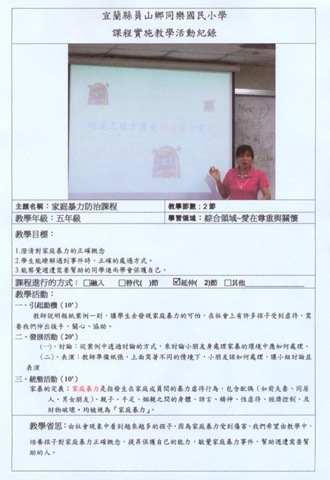 宜蘭縣員山鄉同樂國民小學
課程實施教學活動紀錄
主題名稱：家庭暴力防治課程
教學節數：2 節
教學年級：五年級
學習領域：綜合領域~愛在尊重與關懷
教學目標：
1.澄清對家庭暴力的正確概念
2.學生能瞭解遇到事件時，正確的處遇方式。
3.能察覺週遭需要幫助的同學進而學會保護自己。
課程進行的方式：□融入 □替代( )節 ☑延伸( 2)節 □其他
教學活動：
一、引起動機（10"）
教師說明報紙案例一則，讓學生去發現家庭暴力的可怕，在社會上有許多孩子受到虐待，需
要我們伸出援手，關心、協助。
二、發展活動（20"）
（一）、討論：從案例中透過討論的方式，來討論小朋友身處理家暴的環境中應如何處理。
（二）、表演：教師準備紙張，上面寫著不同的情境下，小朋友該如何處理，讓小組討論並
表演
三、統整活動（10"）
家暴的定義：家庭暴力是指發生在家庭成員間的暴力虐待行為，包含配偶（如前夫妻、同居
人、男女朋友）、親子、手足、姻親之間的身體、語言、精神、性虐待、經濟控制，及
財物破壞。均被視為『家庭暴力』。
教學省思：由社會現象中看到越來越多的孩子，因為家庭暴力受到傷害，我們希望由教學中，
培養孩子對家庭暴力正確概念，提昇保護自己的能力，敏覺家庭暴力事件，幫助週遭需要幫
助的人。